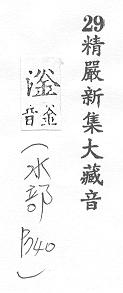 29精嚴新集大藏音
滏釜音
(水部